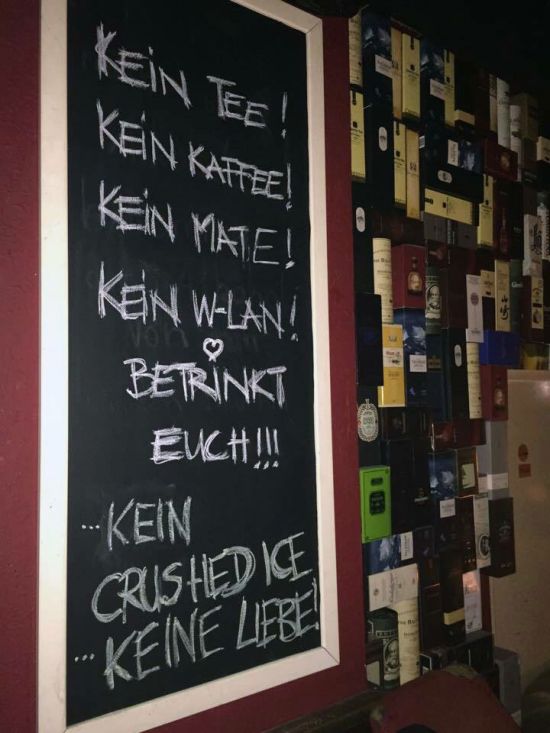 KEIN TEE!
KEIN KAFFEE!
KEIN MATE!
KEIN W-LAN!
BETRINKT
EUCH!!!
...KEIN
CRUSHED ICE
...KEINE LIEBE!